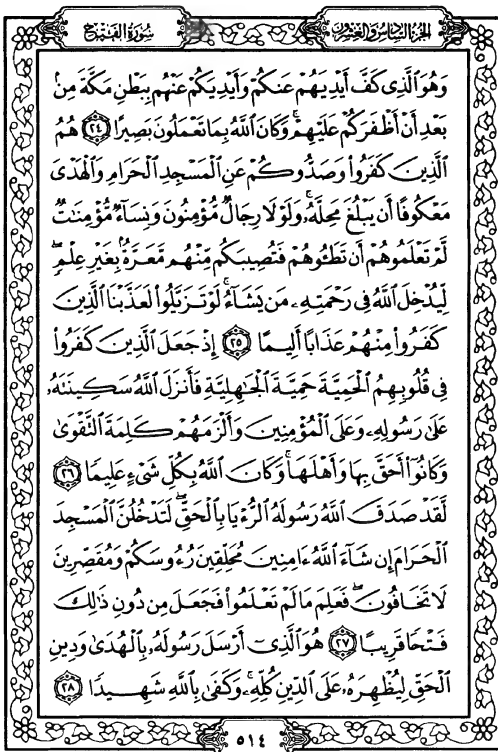 الجزء السادس والعشرون
سورة الفتح
وَهُوَ الَّذِي كَفَّ أَيْدِيَهُمْ عَنكُمْ وَأَيْدِيَكُمْ عَنْهُم بِبَطْنِ مَكَّةَ مِنۢ
بَعْدِ أَنْ أَظْفَرَكُمْ عَلَيْهِمْ ۚ وَكَانَ اللَّهُ بِمَا تَعْمَلُونَ بَصِيرًا ٢٤ هُمُ
الَّذِينَ كَفَرُوا۟ وَصَدُّوكُمْ عَنِ الْمَسْجِدِ الْحَرَامِ وَالْهَدْىَ
مَعْكُوفًا أَن يَبْلُغَ مَحِلَّهُۥ ۚ وَلَوْلَا رِجَالٌ مُّؤْمِنُونَ وَنِسَآءٌ مُّؤْمِنَٰتٌ
لَّمْ تَعْلَمُوهُمْ أَن تَطَـُٔوهُمْ فَتُصِيبَكُم مِّنْهُم مَّعَرَّةٌۢ بِغَيْرِ عِلْمٍ ۖ
لِّيُدْخِلَ اللَّهُ فِى رَحْمَتِهِۦ مَن يَشَآءُ ۚ لَوْ تَزَيَّلُوا۟ لَعَذَّبْنَا الَّذِينَ
كَفَرُوا۟ مِنْهُمْ عَذَابًا أَلِيمًا ٢٥ إِذْ جَعَلَ الَّذِينَ كَفَرُوا۟
فِى قُلُوبِهِمُ الْحَمِيَّةَ حَمِيَّةَ الْجَٰهِلِيَّةِ فَأَنزَلَ اللَّهُ سَكِينَتَهُۥ
عَلَىٰ رَسُولِهِۦ وَعَلَى الْمُؤْمِنِينَ وَأَلْزَمَهُمْ كَلِمَةَ التَّقْوَىٰ
وَكَانُوٓا۟ أَحَقَّ بِهَا وَأَهْلَهَا ۚ وَكَانَ اللَّهُ بِكُلِّ شَىْءٍ عَلِيمًا ٢٦
لَّقَدْ صَدَقَ اللَّهُ رَسُولَهُ الرُّءْيَا بِالْحَقِّ ۖ لَتَدْخُلُنَّ الْمَسْجِدَ
الْحَرَامَ إِن شَآءَ اللَّهُ ءَامِنِينَ مُحَلِّقِينَ رُءُوسَكُمْ وَمُقَصِّرِينَ
لَا تَخَافُونَ ۖ فَعَلِمَ مَا لَمْ تَعْلَمُوا۟ فَجَعَلَ مِن دُونِ ذَٰلِكَ
فَتْحًا قَرِيبًا ٢٧ هُوَ الَّذِىٓ أَرْسَلَ رَسُولَهُۥ بِالْهُدَىٰ وَدِينِ
الْحَقِّ لِيُظْهِرَهُۥ عَلَى الدِّينِ كُلِّهِۦ ۚ وَكَفَىٰ بِاللَّهِ شَهِيدًا ٢٨
٥١٤